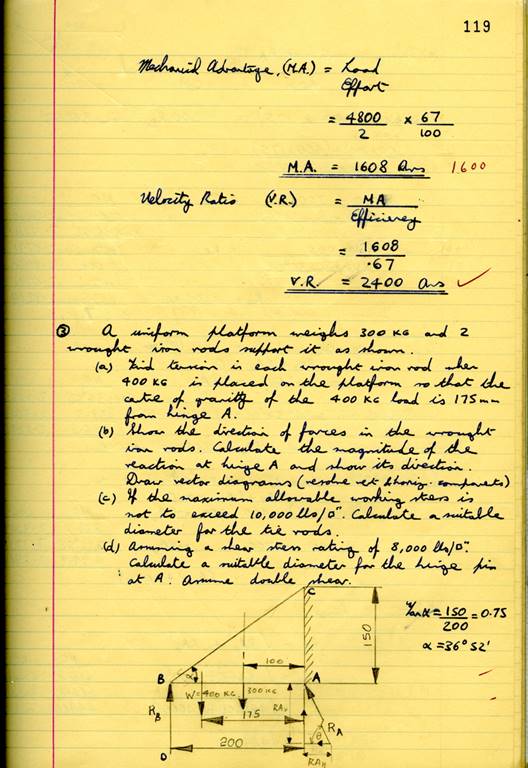 119
Mechanical Advantage, (M.A.) = Load
Effort
= 4800 x 67
2 100
M.A. = 1608 Ans 1600
Velocity Ratio (V.R.) = MA
Efficiency
= 1608
.67
V.R. = 2400 Ans ✓
③ A uniform platform weighs 300 KG and 2
wrought iron rods support it as shown.
(a) Find tension in each wrought iron rod when
400 KG is placed on the platform so that the
centre of gravity of the 400 KG load is 175 mm
from hinge A.
(b) Show the direction of forces in the wrought
iron rods. Calculate the magnitude of the
reaction at hinge A and show its direction.
Draw vector diagrams (resolve vert & horiz. components)
(c) If the maximum allowable working stress is
not to exceed 10,000 lbs/□". Calculate a suitable
diameter for the tie rods.
(d) Assuming a shear stress rating of 8,000 lbs/□".
Calculate a suitable diameter for the hinge pin
at A. Assume double shear.
C
Tan α = 150 = 0.75
200
α = 36° 52'
150
100
B α A
W=400 KG 300 KG
R_B 175 RAv R_A
θ
200
D RAH